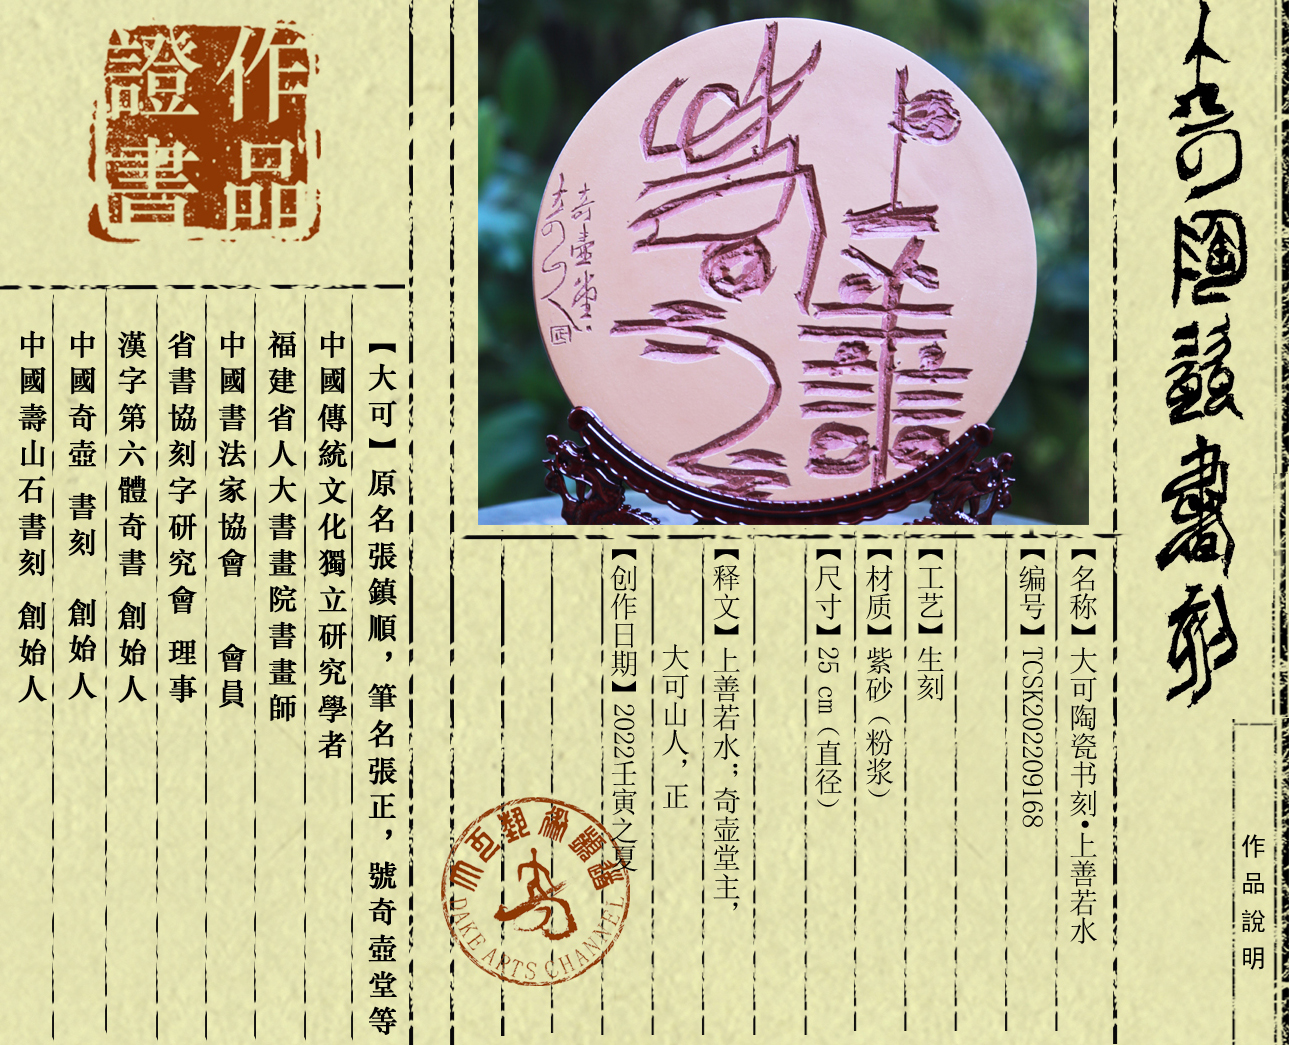 大可陶瓷書刻
作品說明
上善若水
奇壺堂主
大可山人
正
【名称】大可陶瓷书刻•上善若水
【编号】TCSK202209168
【工艺】生刻
【材质】紫砂（粉浆）
【尺寸】25 cm（直径）
【释文】上善若水；奇壶堂主，
大可山人，正
【创作日期】2022壬寅之夏
DAKE ARTS CHANNEL
作品
證書
【大可】原名張鎮順，筆名張正，號奇壺堂等
中國傳統文化獨立研究學者
福建省人大書畫院書畫師
中國書法家協會 會員
省書協刻字研究會 理事
漢字第六體奇書 創始人
中國奇壺 書刻 創始人
中國壽山石書刻 創始人